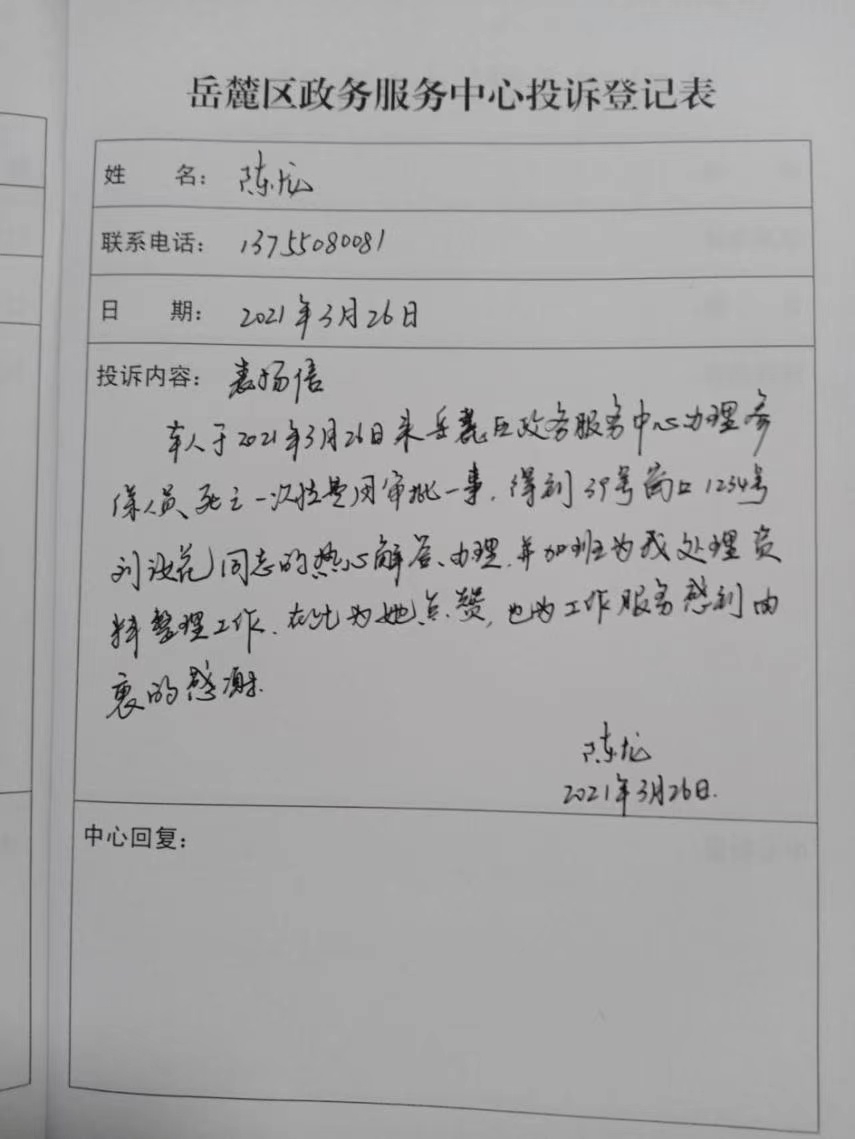 岳麓区政务服务中心投诉登记表
姓 名: 陈龙
联系电话: 13755080081
日 期: 2021年3月26日
投诉内容: 表扬信
本人于2021年3月26日来岳麓区政务服务中心办理参
保人员死亡一次性费用审批一事,得到39号窗口1234号
刘汝花同志的热心解答、办理,并加班为我处理资
料整理工作.在此为她点赞,也为工作服务感到由
衷的感谢.
陈龙
2021年3月26日.
中心回复: